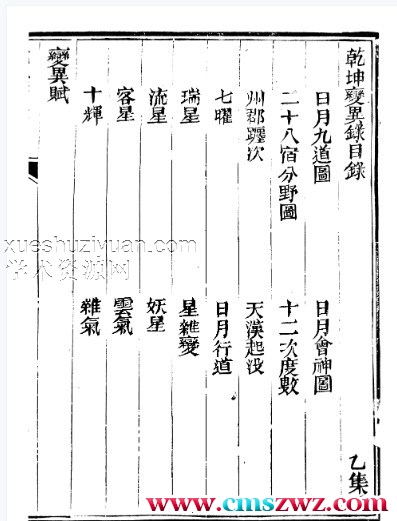 乾坤變異錄目錄
乙集
日月九道圖
日月會神圖
二十八宿分野圖
十二次度數
州郡躔次
天漢起没
七曜
日月行道
瑞星
星雜變
流星
妖星
客星
雲氣
十輝
雜氣
變異賦
xueshuziyuan.com
学术资源网
www.cmszwz.com